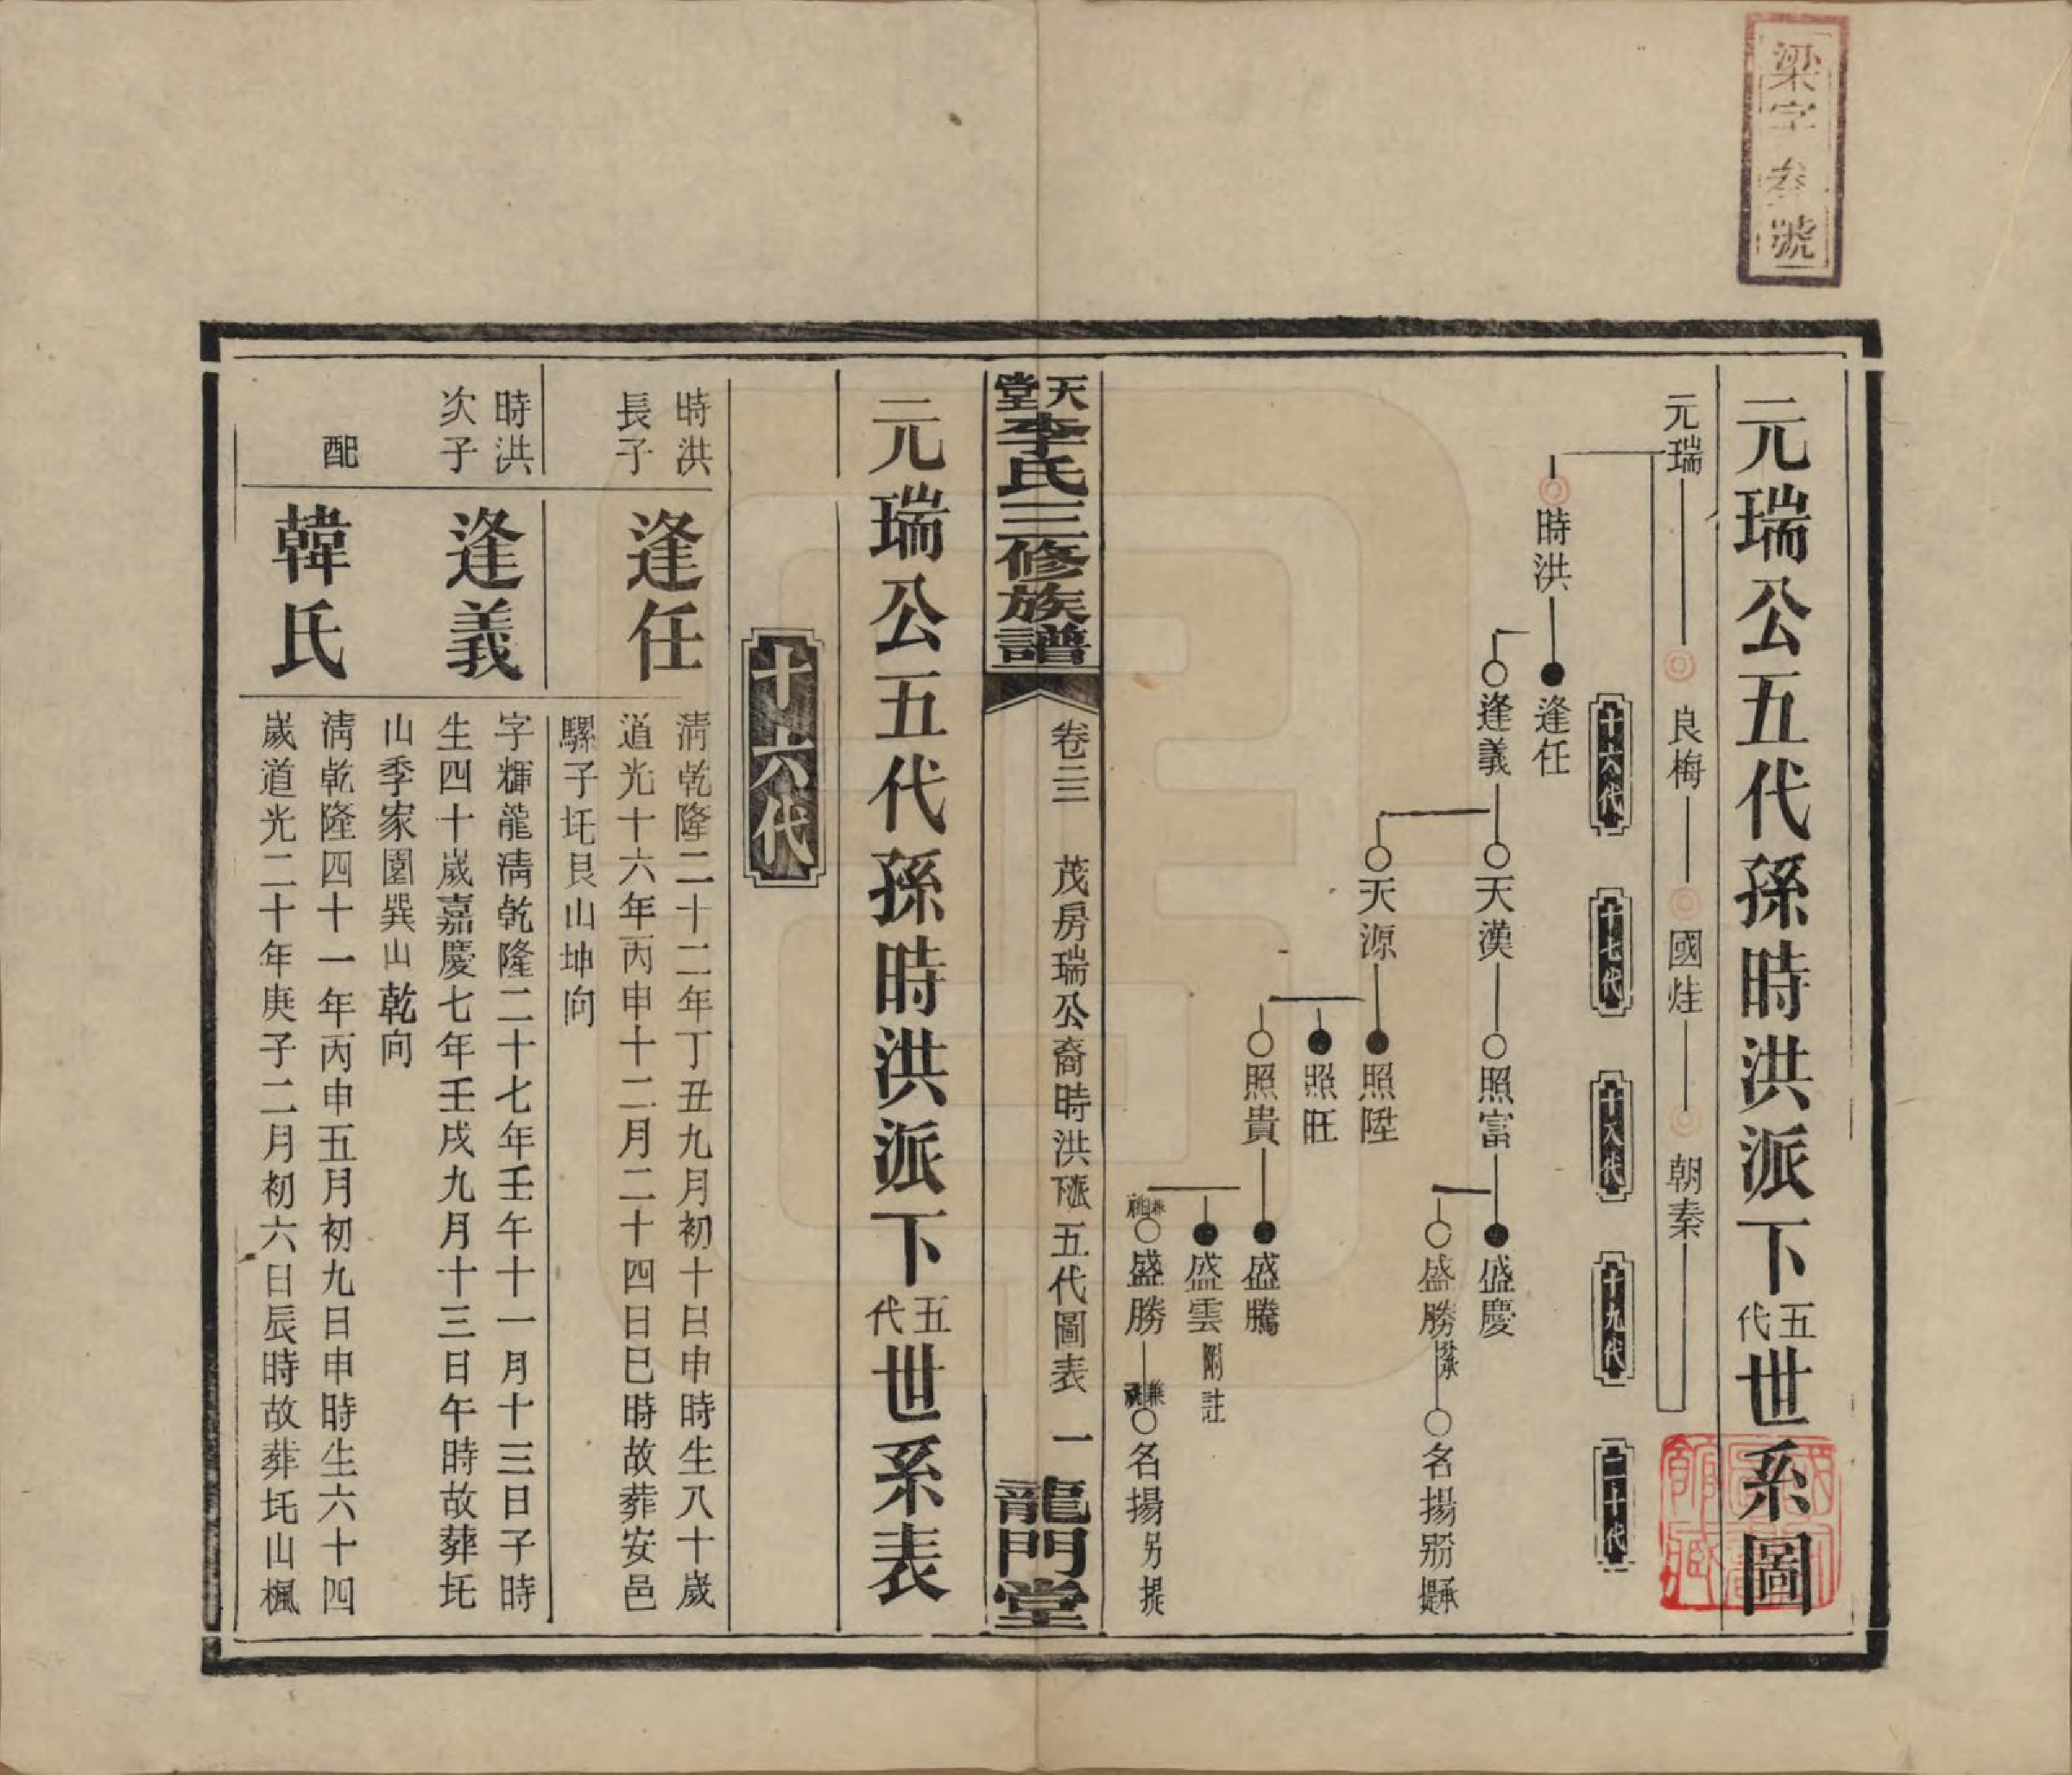 梁字叁號
元瑞公五代孫時洪派下五代世系圖
元瑞 良梅 國烓 朝秦
十六代 十七代 十八代 十九代 二十代
時洪 逢任
逢義 天漢 照富 盛慶
盛勝 名揚
天源 照陞
照旺
照貴 盛騰
盛雲 附註
盛勝 名揚 另提
天堂李氏三修族譜
卷三 茂房瑞公裔時洪派下五代圖表 一
龍門堂
元瑞公五代孫時洪派下五代世系表
十六代
時洪長子
逢任
清乾隆二十二年丁丑九月初十日申時生八十歲
道光十六年丙申十二月二十四日巳時故葬安邑
騾子圫艮山坤向
時洪次子
逢義
字輝龍清乾隆二十七年壬午十一月十三日子時
生四十歲嘉慶七年壬戌九月十三日午時故葬圫
山季家園巽山乾向
配
韓氏
清乾隆四十一年丙申五月初九日申時生六十四
歲道光二十年庚子二月初六日辰時故葬圫山楓